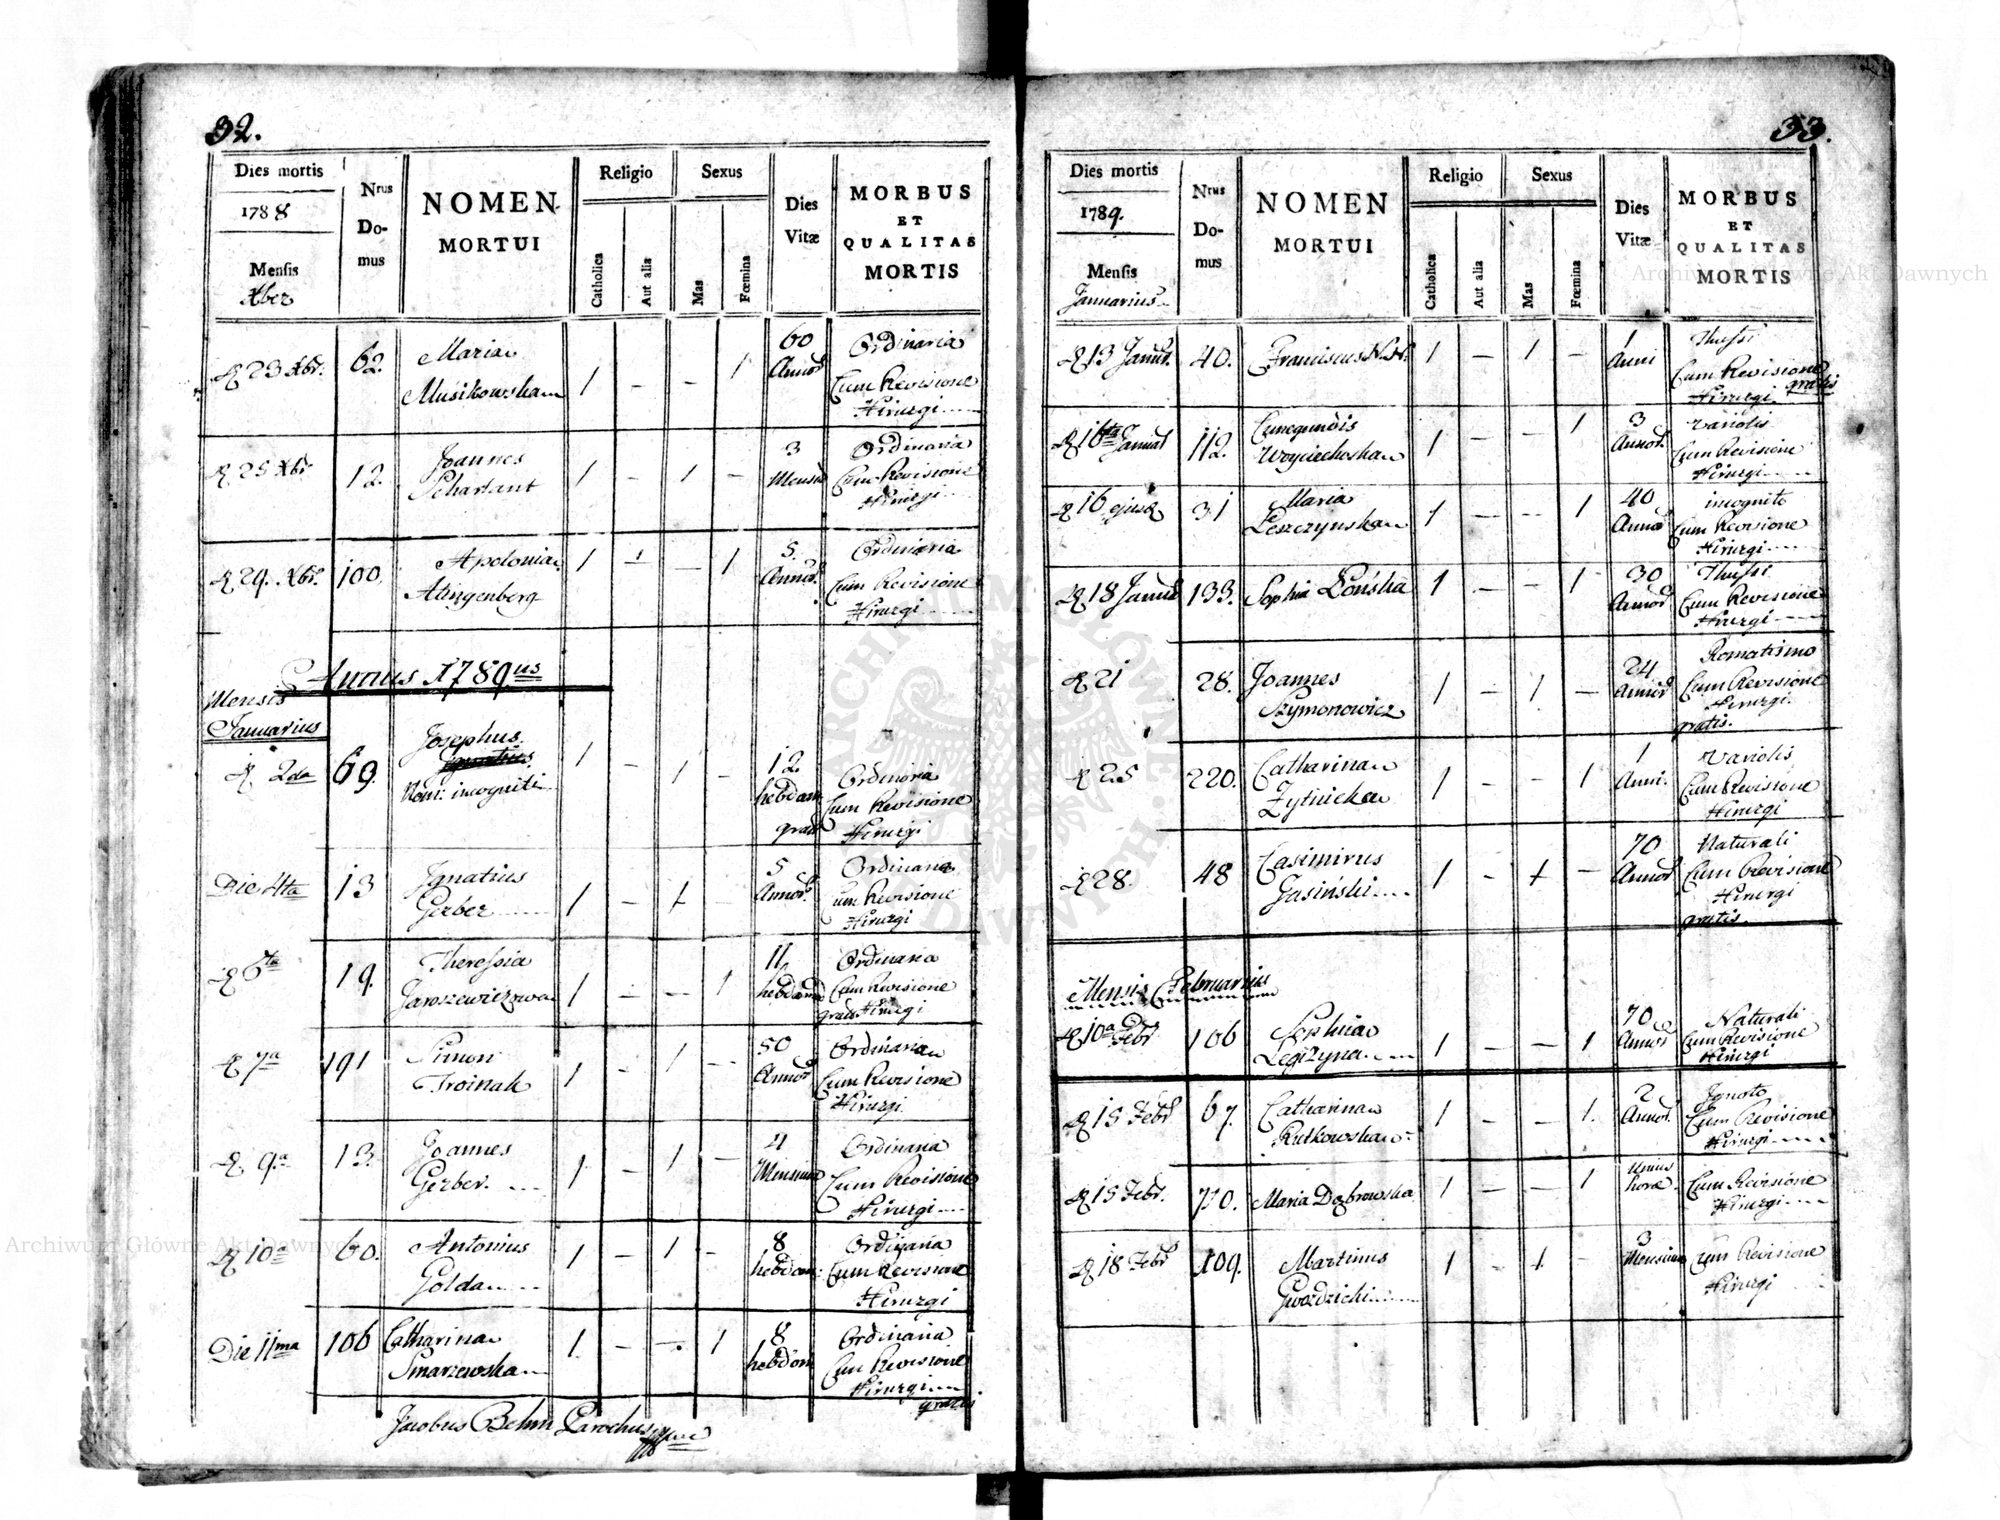 32.
Dies mortis
1788
Mensis
Xber
Nrus
Do-
mus
NOMEN
MORTUI
Religio
Catholica
Aut alia
Sexus
Mas
Fœmina
Dies
Vitæ
MORBUS
ET
QUALITAS
MORTIS
23 Xbr. 62. Maria 1 – – 1 60 Ordinaria
Musikowska Annor Cum Revisione
Hirurgi
25 Xbr 12. Joannes 1 – 1 – 3 Ordinaria
Scharlant Mensiu Cum Revisione
Hirurgi
29. Xbr. 100. Apolonia 1 1 – 1 5. Ordinaria
Klingenberg Annor. Cum Revisione
Hirurgi
Annus 1789us
Mensis
Januarius
2da 69. Josephus 1 – 1 – 12. Ordinaria
Nom: incogniti hebdom Cum Revisione
grat Hirurgi
Die 4ta 13 Ignatius 1 – 1 – 5 Ordinaria
Gerber Annor. Cum Revisione
Hirurgi
6ta 19. Theressia 1 – – 1 11 Ordinaria
Jaroszewiczowa hebdom Cum Revisione
gratis Hirurgi
7a 191 Simon 1 – 1 – 50 Ordinaria
Troinak Annor Cum Revisione
Hirurgi
9a 13. Joannes 1 – 1 – 4 Ordinaria
Gerber. Mensium Cum Revisione
Hirurgi
10a 60. Antonius 1 – 1 – 8 Ordinaria
Golda hebdom: Cum Revisione
Hirurgi
Die 11ma 106 Catharina 1 – – 1 8 Ordinaria
Smarzewska hebdom Cum Revisione
Hirurgi
gratis
Jacobus Behm Parochus
33.
Dies mortis
1789.
Mensis
Januarius
Nrus
Do-
mus
NOMEN
MORTUI
Religio
Catholica
Aut alia
Sexus
Mas
Fœmina
Dies
Vitæ
MORBUS
ET
QUALITAS
MORTIS
13 Januar. 40. Franciscus N.N. 1 – 1 – 1 Thussi
Anni Cum Revisione
Hirurgi gratis
16ta Januar 112. Cunegundis 1 – – 1 3 Variolis
Woyciechoska Annor. Cum Revisione
Hirurgi
16 ejusd 31 Maria 1 – – 1 40 incognito
Leszczynska Annor Cum Revisione
Hirurgi
18 Januar 133. Sophia Łońska 1 – – 1 30 Thussi
Annor Cum Revisione
Hirurgi
21 28. Joannes 1 – 1 – 24 Romatismo
Szymonowicz Annor Cum Revisione
Hirurgi.
gratis.
25 220. Catharina 1 – – 1 1 Variolis
Zytnicka Anni. Cum Revisione
Hirurgi
28. 48 Casimirus 1 – 1 – 70 Naturali
Gasiński Annor Cum Revisione
Hirurgi
gratis.
Mensis Februarius
10a Febr 106 Sophia 1 – – 1 70 Naturali
Legizyna Annor Cum Revisione
Hirurgi
15 Febr 67. Catharina 1 – – 1. 2 Ignoto
Rutkowska Annor. Cum Revisione
Hirurgi
15 Febr. 710. Maria Dąbrowska 1 – – 1 Unius Cum Revisione
horæ. Hirurgi
18 Febr 109. Martinus 1 – 1 – 3 Cum Revisione
Gwozdzicki Mensium Hirurgi
ARCHIWUM GŁÓWNE AKT DAWNYCH
Archiwum Główne Akt Dawnych
Archiwum Główne Akt Dawnych